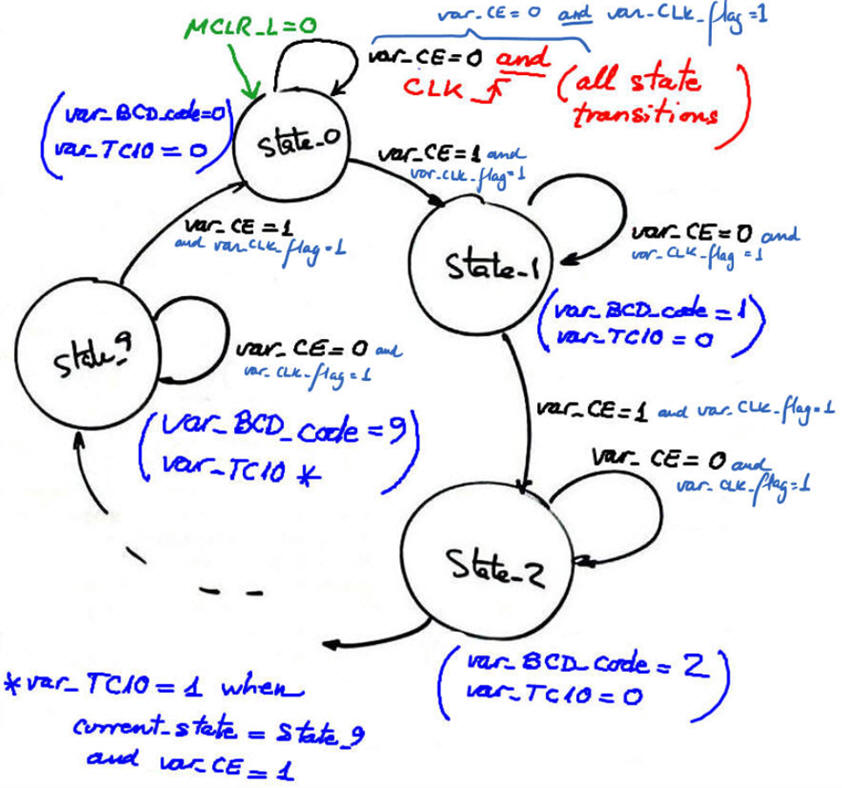 var_CE = 0 and var_CLK_flag=1
MCLR_L=0
var_CE=0 and
CLK
(all state
transitions)
(var_BCD_code=0
var_TC10 = 0)
State_0
var_CE=1 and
var_CLK_flag=1
var_CE = 1
and var_CLK_flag=1
State_1
var_CE=0 and
var_CLK_flag=1
(var_BCD_code = 1
var_TC10 = 0)
State_9
var_CE=0 and
var_CLK_flag=1
(var_BCD_code=9
var_TC10 *)
var_CE=1 and var_CLK_flag=1
var_CE= 0 and
var_CLK_flag=1
State_2
(var_BCD_code = 2
var_TC10 = 0)
*var_TC10 = 1 when
current_state = State_9
and var_CE = 1